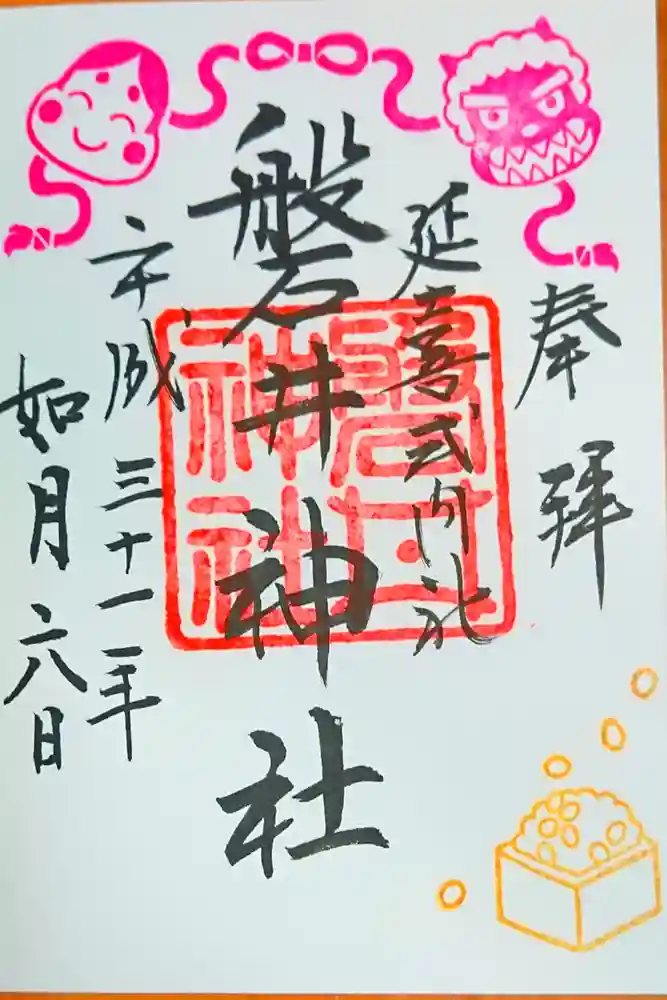 奉拝
延喜式内社
磐井神社
磐井神社
平成三十一年
如月六日